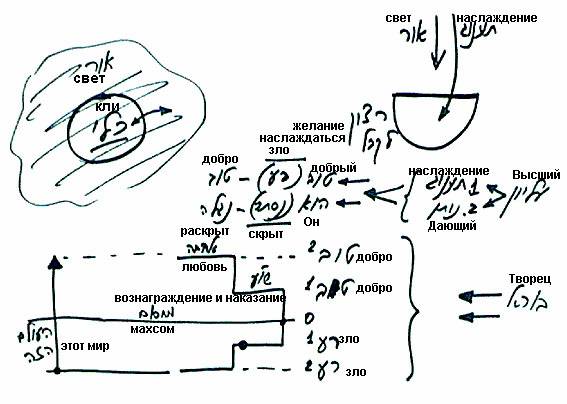 אור
свет
кли
כלי
свет
אור
наслаждение
תענוג
желание
наслаждаться
הרצון
לקבל
зло
добро
טוב – (רע) – טוב
добрый
наслаждение
1. תענוג
Высший
עליון
הוא (נסתר) – נגלה
2. נותן
Дающий
раскрыт
скрыт
Он
אהבה
любовь
2 טוב
добро
שו"ע
вознаграждение и наказание
1 טוב
добро
Творец
בורא
מחסום
махсом
0
העולם
הזה
этот мир
1 רע
зло
2 רע
зло